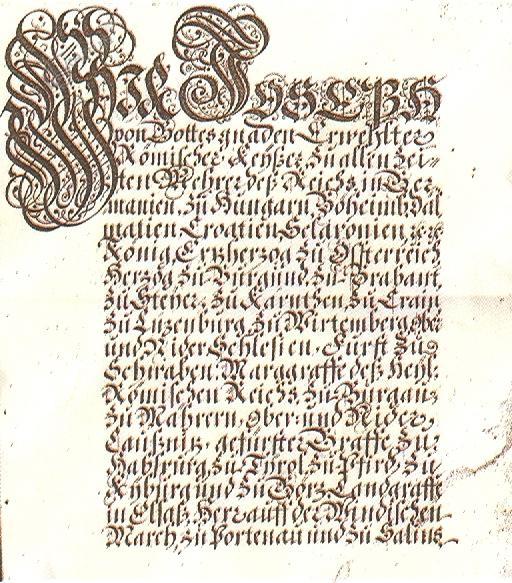 Wir Joseph
von Gottes gnaden Erwehlter
Römischer Keyßer, zu allen Zei-
ten Mehrer deß Reichs, in Ger-
manien, zu Hungarn, Böheimb, Dal
matien, Croatien, Sclavonien, &. &.
König, Ertzherzog zu Össterreich
Herzog zu Burgund, zu Brabant
zu Steyer, zu Kärntßen, zu Crain
zu Luzenburg, zu Wirtemberg, ober
und Nider Schlesien, Fürst zu
Schwaben, Marggraffe deß Heyl:
Römischen Reichs, zu Burgau,
zu Mährern, ober und Nider,
Laußnitz, gefürster Graffe zu
Habspurg, zu Tyrol, zu Pfird, zu
Kyburg und zu Görz, Landgraffe
in Elsaß, Herr auff der Windischen
March, zu Portenau und zu Salins